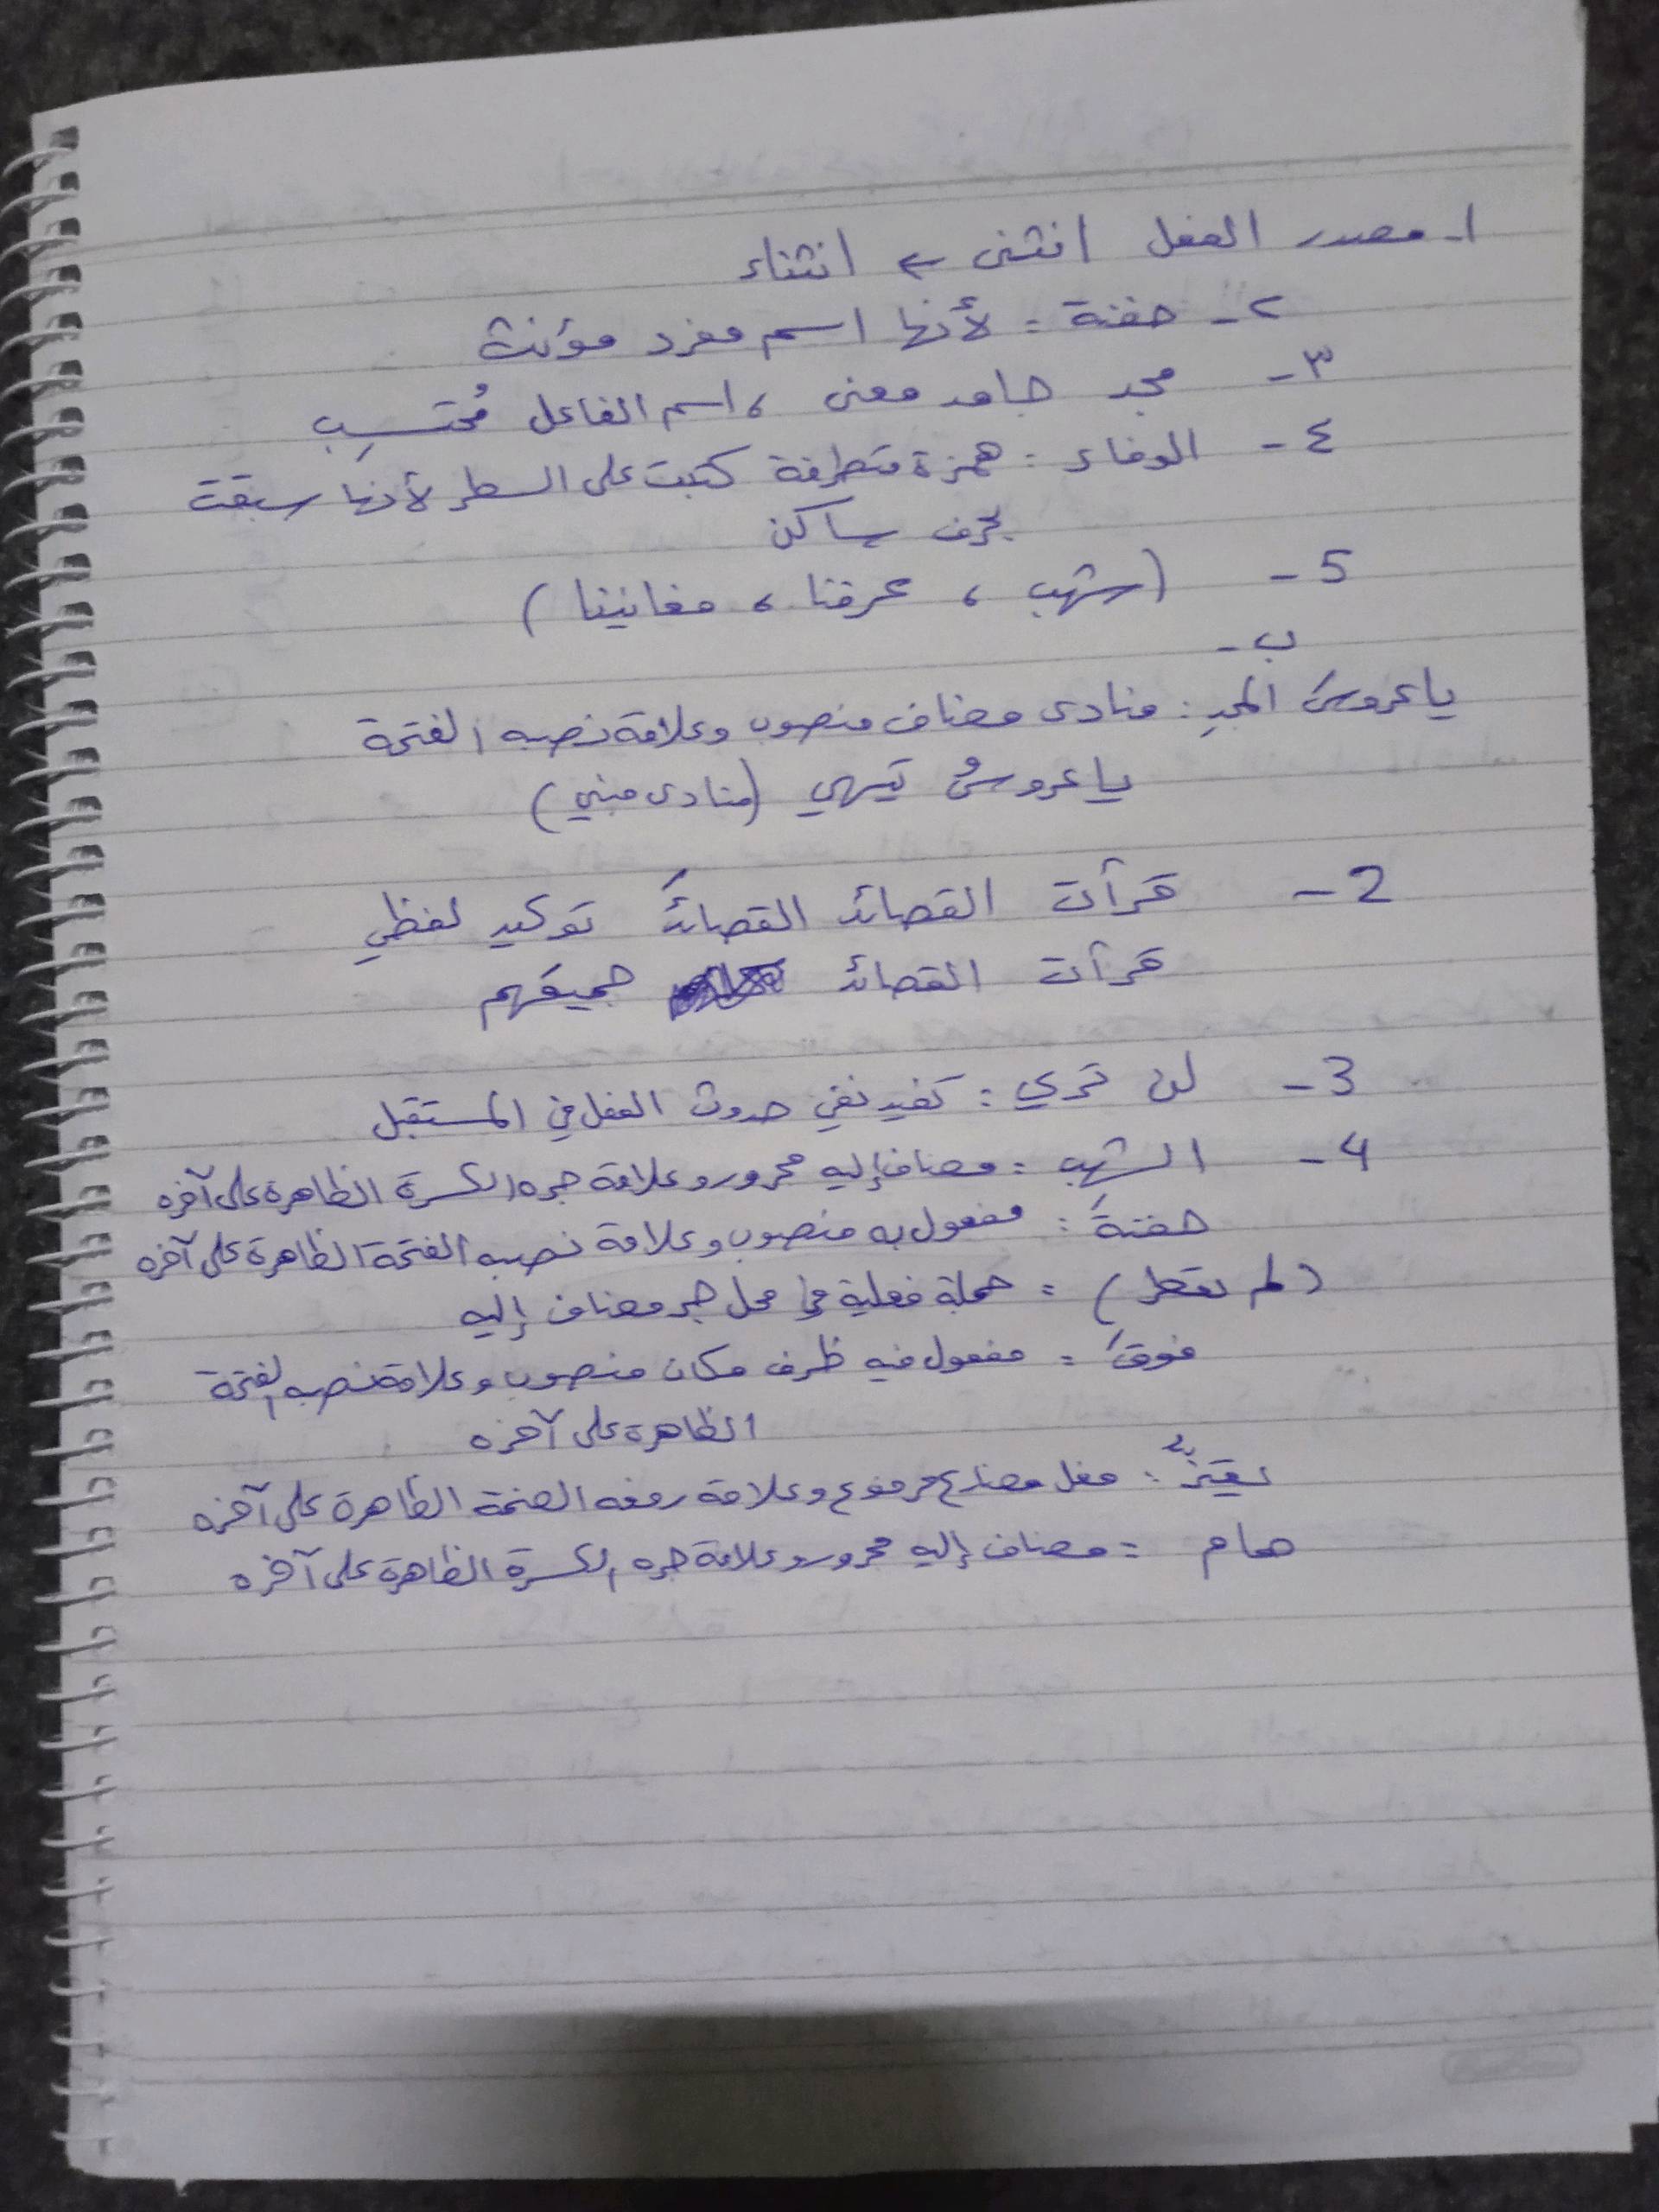 ١- مصدر الفعل انثنى ← انثناء
٢- حفنة : لأنها اسم مفرد مؤنث
٣- مجد جامد معنى ، اسم الفاعل مُحتسِب
٤- الوفاء : همزة متطرفة كتبت على السطر لأنها سبقت
بحرف ساكن
5- (شهب ، عرفنا ، مغانينا)
ب-
يا عروسَ المجدِ : منادى مضاف منصوب وعلامة نصبه الفتحة
يا عروسُ تيهي (منادى مبني)
2- قرأت القصائد القصائدَ توكيد لفظي
قرأت القصائد جميعَهم
3- لن تري : تفيد نفي حدوث الفعل في المستقبل
4- الشهب : مضاف إليه مجرور وعلامة جره الكسرة الظاهرة على آخره
حفنةَ : مفعول به منصوب وعلامة نصبه الفتحة الظاهرة على آخره
(لم تعطر) : جملة فعلية في محل جر مضاف إليه
فوقَ : مفعول فيه ظرف مكان منصوب وعلامة نصبه الفتحة
الظاهرة على آخره
: فعل مضارع مرفوع وعلامة رفعه الضمة الظاهرة على آخره
همام : مضاف إليه مجرور وعلامة جره الكسرة الظاهرة على آخره